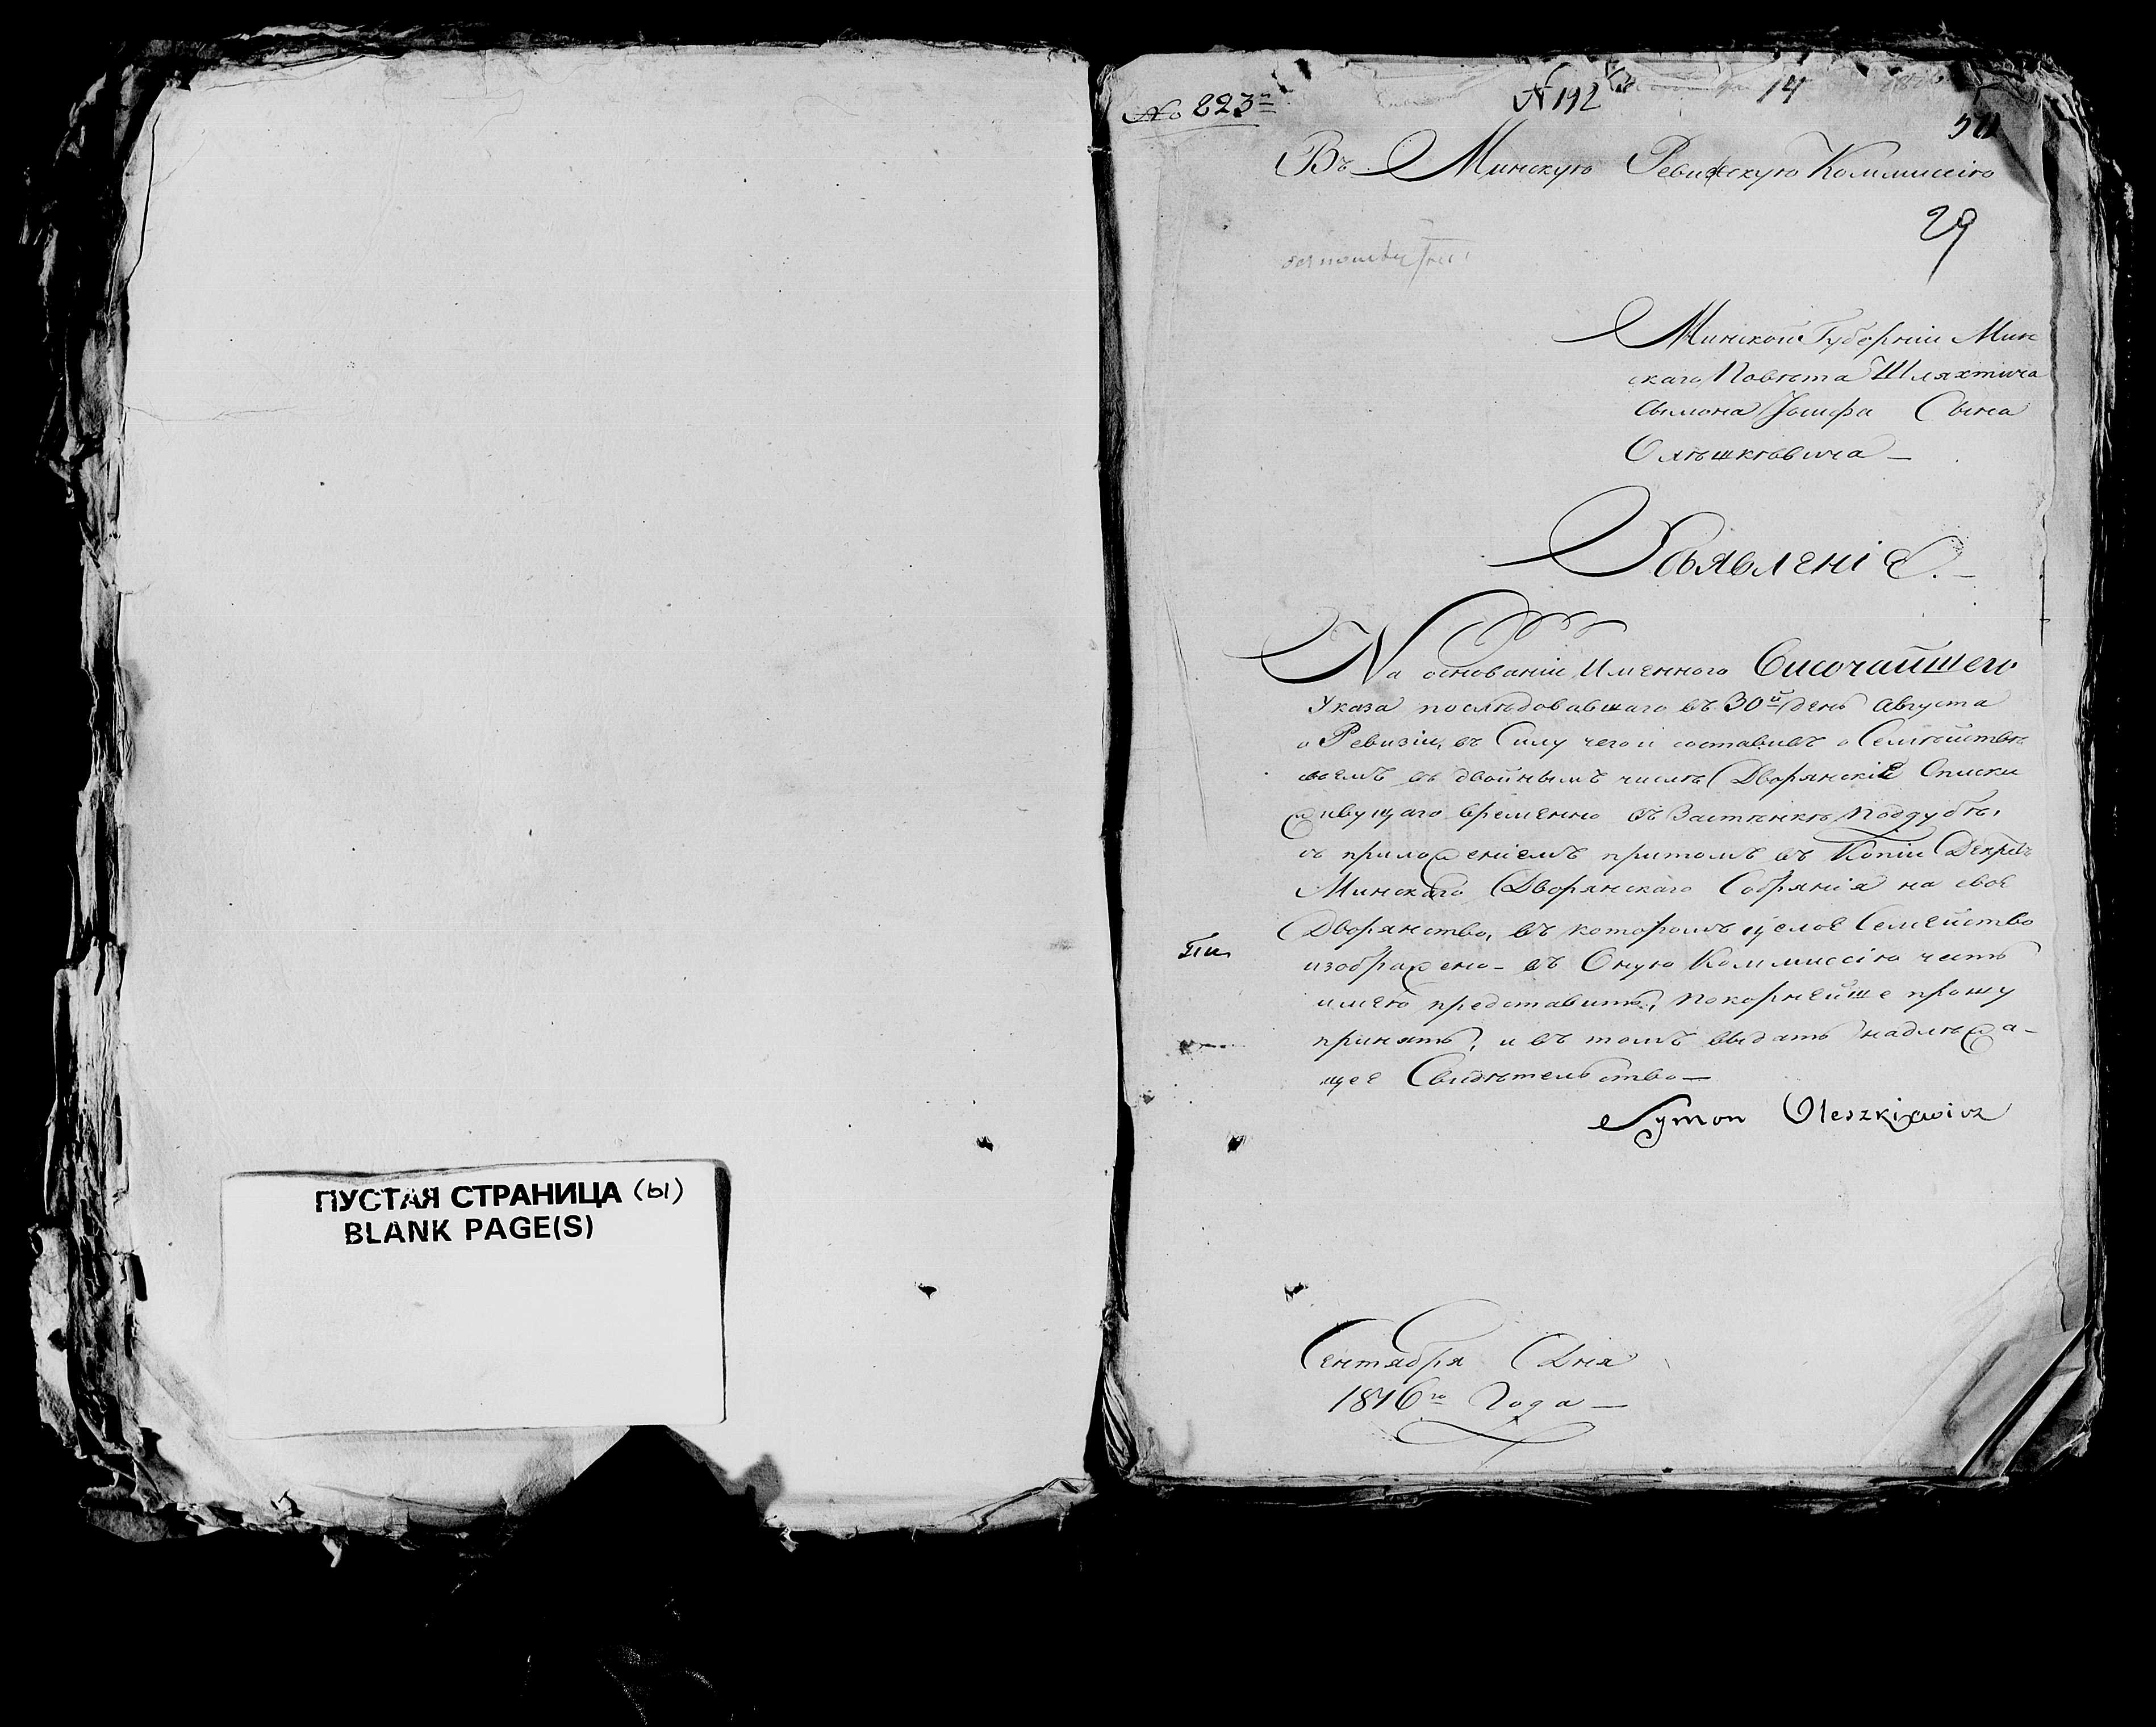 ПУСТАЯ СТРАНИЦА (ы)
BLANK PAGE(S)
No 223
N 192
14
Въ Минскую Ревизскую Коммиссію
29
Минской Губерніи Мин
скаго Повѣта Шляхтича
Сымона Іосифа Сына
Олѣшкѣвича —
Объявленіе. —
На основаніи Именного Височайшего
Указа послѣдовавшаго въ 30й день Августа
о Ревизіи, въ Силу чего и составивъ о Семѣйствѣ
своемъ въ двойнымъ числѣ Дворянскіе Списки
живущаго временно въ Застѣнкѣ Поддубѣ,
съ приложеніемъ притомъ въ Копіи
Минскаго Дворянскаго Собранія на своё
Дворянство, въ которомъ целое Семейство
изображено — въ Оную Коммиссію честь
имею представить, покорнейше прошу
принять, и въ томъ выдать надлѣжа-
щее Свидѣтельство —
Symon Oleszkiewicz
Сентября Дня
1816го Года —